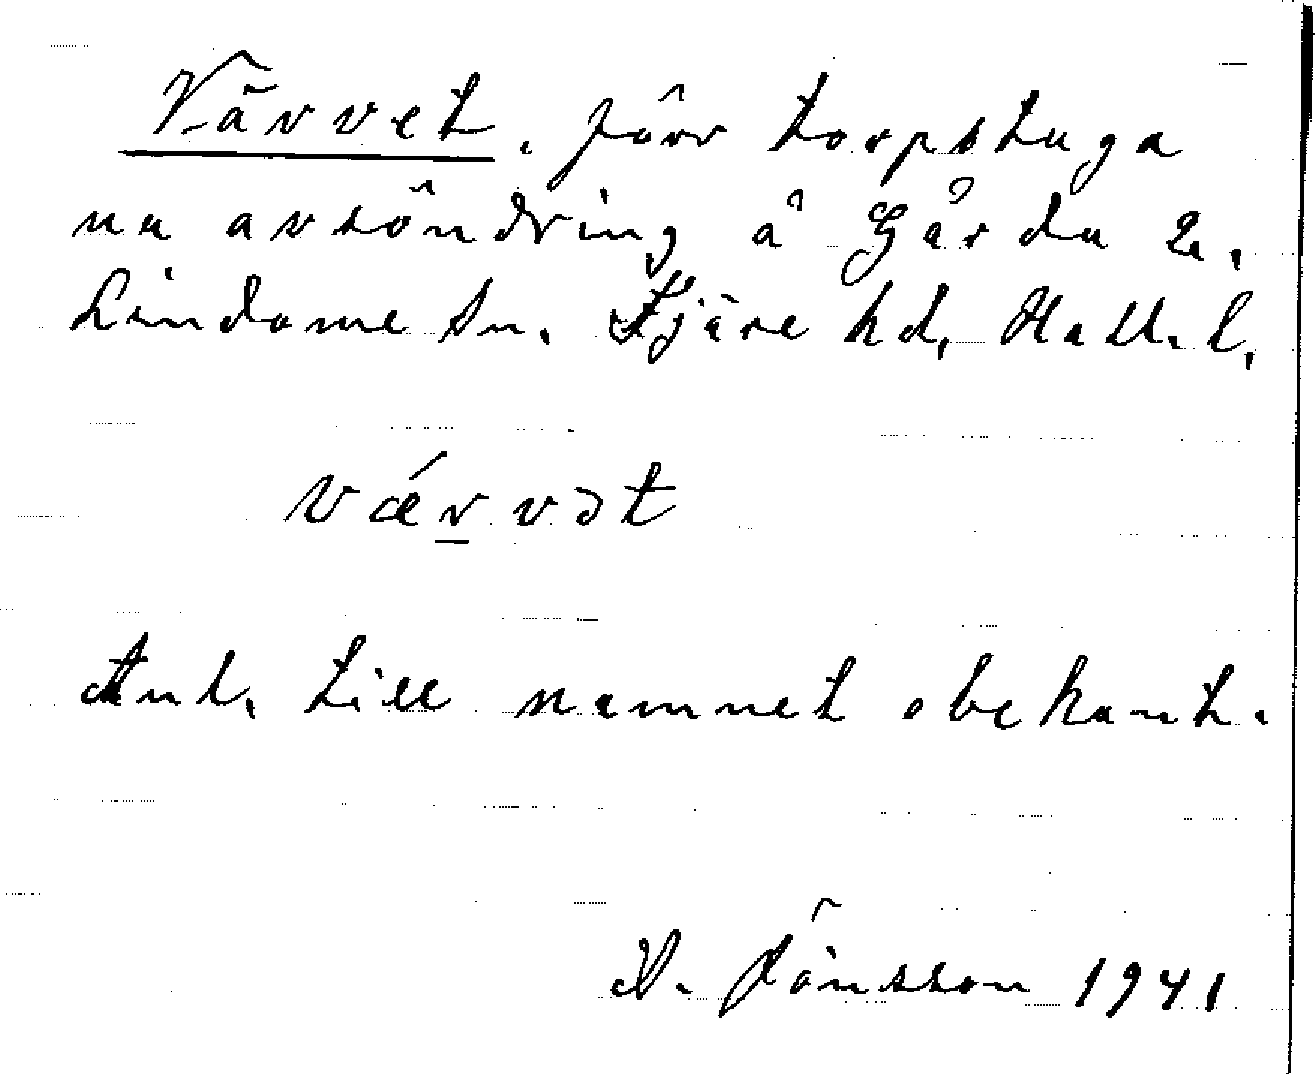 Värvet. förr torpstuga
nu avsöndring å Gårda 2.
Lindome sn. Fjäre hd, Hall. l.
værvət
Anl. till namnet obekant.
N. Jönsson 1941